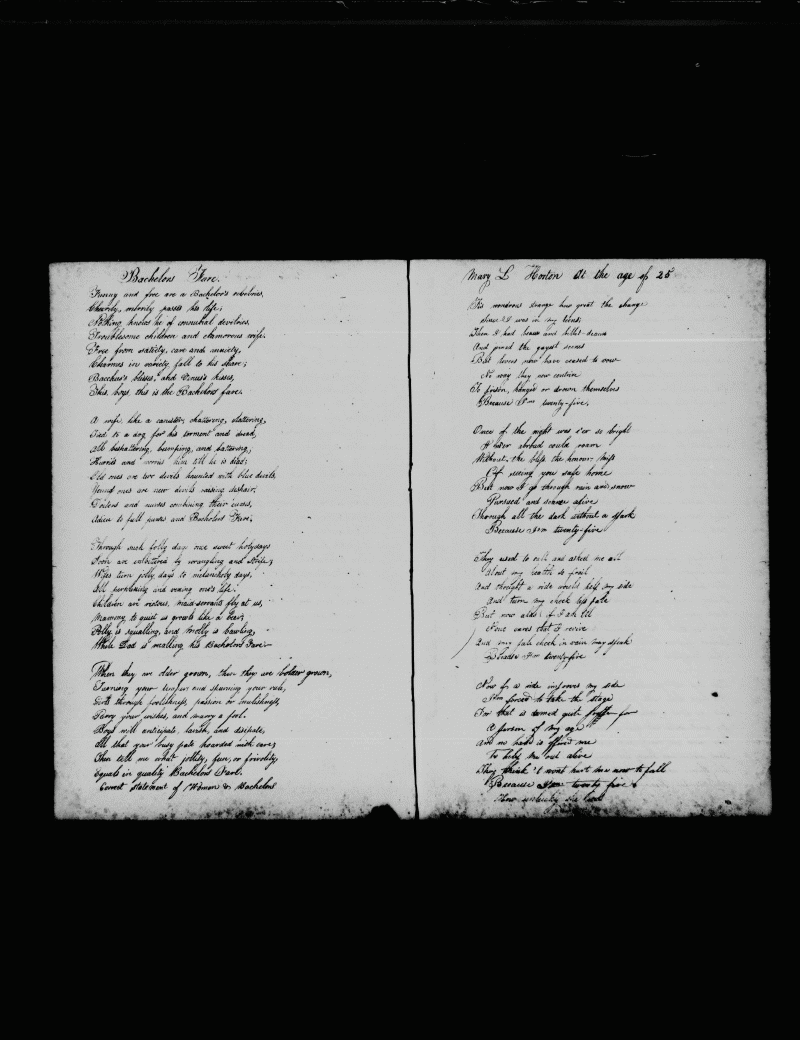 Bachelors Fare.
Funny and free are a Bachelor's revelries,
Cheerily, merrily passes his life;
Nothing knows he of connubial devilries,
Troublesome children and clamorous wife.
Free from satiety, care and anxiety,
Charms in variety fall to his share;
Bacchus's blisses, and Venus's kisses,
This, boys, this is the Bachelors fare.
A wife, like a canister, chattering, clattering,
Tied to a dog for his torment and dread,
All bespattering, bumping, and battering,
Hurries and worries him till he is dead;
Old ones are two devils haunted with blue devils,
Young ones are new devils raising despair;
Doctors and nurses combining their curses,
Adieu to full purses and Bachelors Fare.
Through such folly days once sweet holydays
Soon are embittered by wrangling and strife;
Wifes turn jolly days to melancholy days,
All perplexing and vexing one's life.
Children are riotous, maid-servants fly at us,
Mammy to quiet us growls like a bear;
Polly is squalling, and Molly is bawling,
While Dad is recalling his Bachelors Fare.
When they are older grown, then they are bolder grown,
Turning your temper and spurning your rule,
Girls through foolishness, passion or mulishness,
Parry your wishes, and marry a fool.
Boys will anticipate, lavish, and dissipate,
All that your busy pate hoarded with care;
Then tell me what jollity, fun, or frivolity,
Equals in quality Bachelors Fare.
Correct Statement of Women & Bachelors
Mary L Horton At the age of 25
Tis wondrous strange how great the change
since I was in my teens;
Then I had beaux and billet-deaux
And joined the gayest scenes
But lovers now have ceased to vow
No way they now contrive
To poison, hang or drown themselves
Because I'm twenty-five.
Once if the night was e'er so bright
I ne'er abroad could roam
Without the bliss the honour, Miss
Of seeing you safe home
But now I go through rain and snow
Pursued and scarce alive
Through all the dark without a spark
Because I'm twenty-five
They used to call and asked me all
About my health so frail
And thought a ride would help my side
And turn my cheek less pale
But now alas if I am ill
None cares that I revive
And my pale cheek in vain may speak
Because I'm twenty-five
Now if a ride improves my side
I'm forced to take the stage
For that is deemed quite proper for
A person of my age
And no hand is offered me
To help me out alive
They think 't wont hurt me now to fall
Because I'm twenty five.